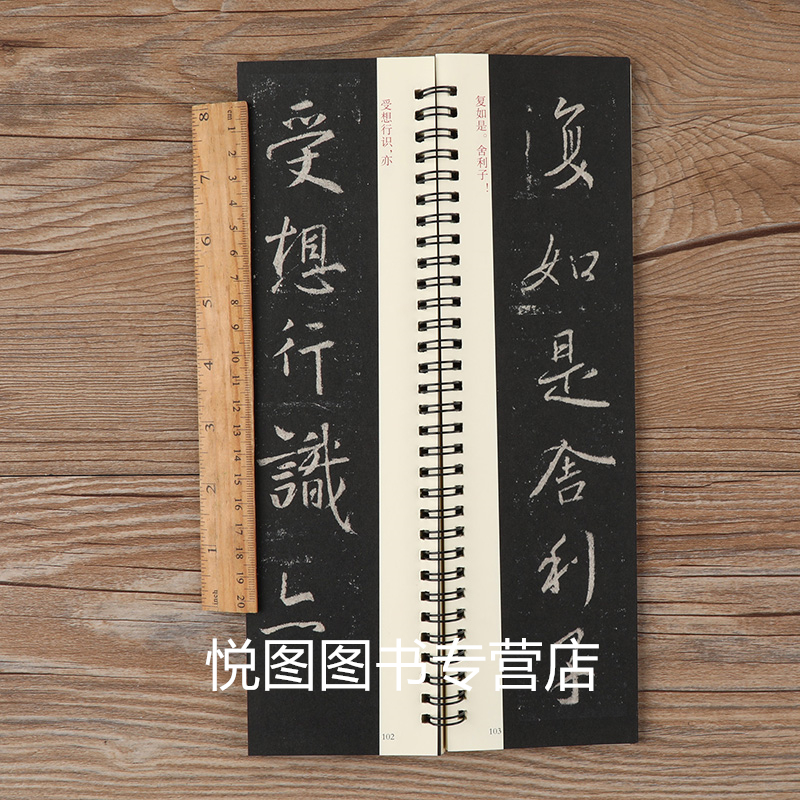 受想行識亦
受想行识，亦
102
复如是。舍利子！
復如是舍利子
103
8 7 6 5 4 3 2 1 inch
cm 1 2 3 4 5 6 7 8 9 10 11 12 13 14 15 16 17 18 19 20
悦图图书专营店